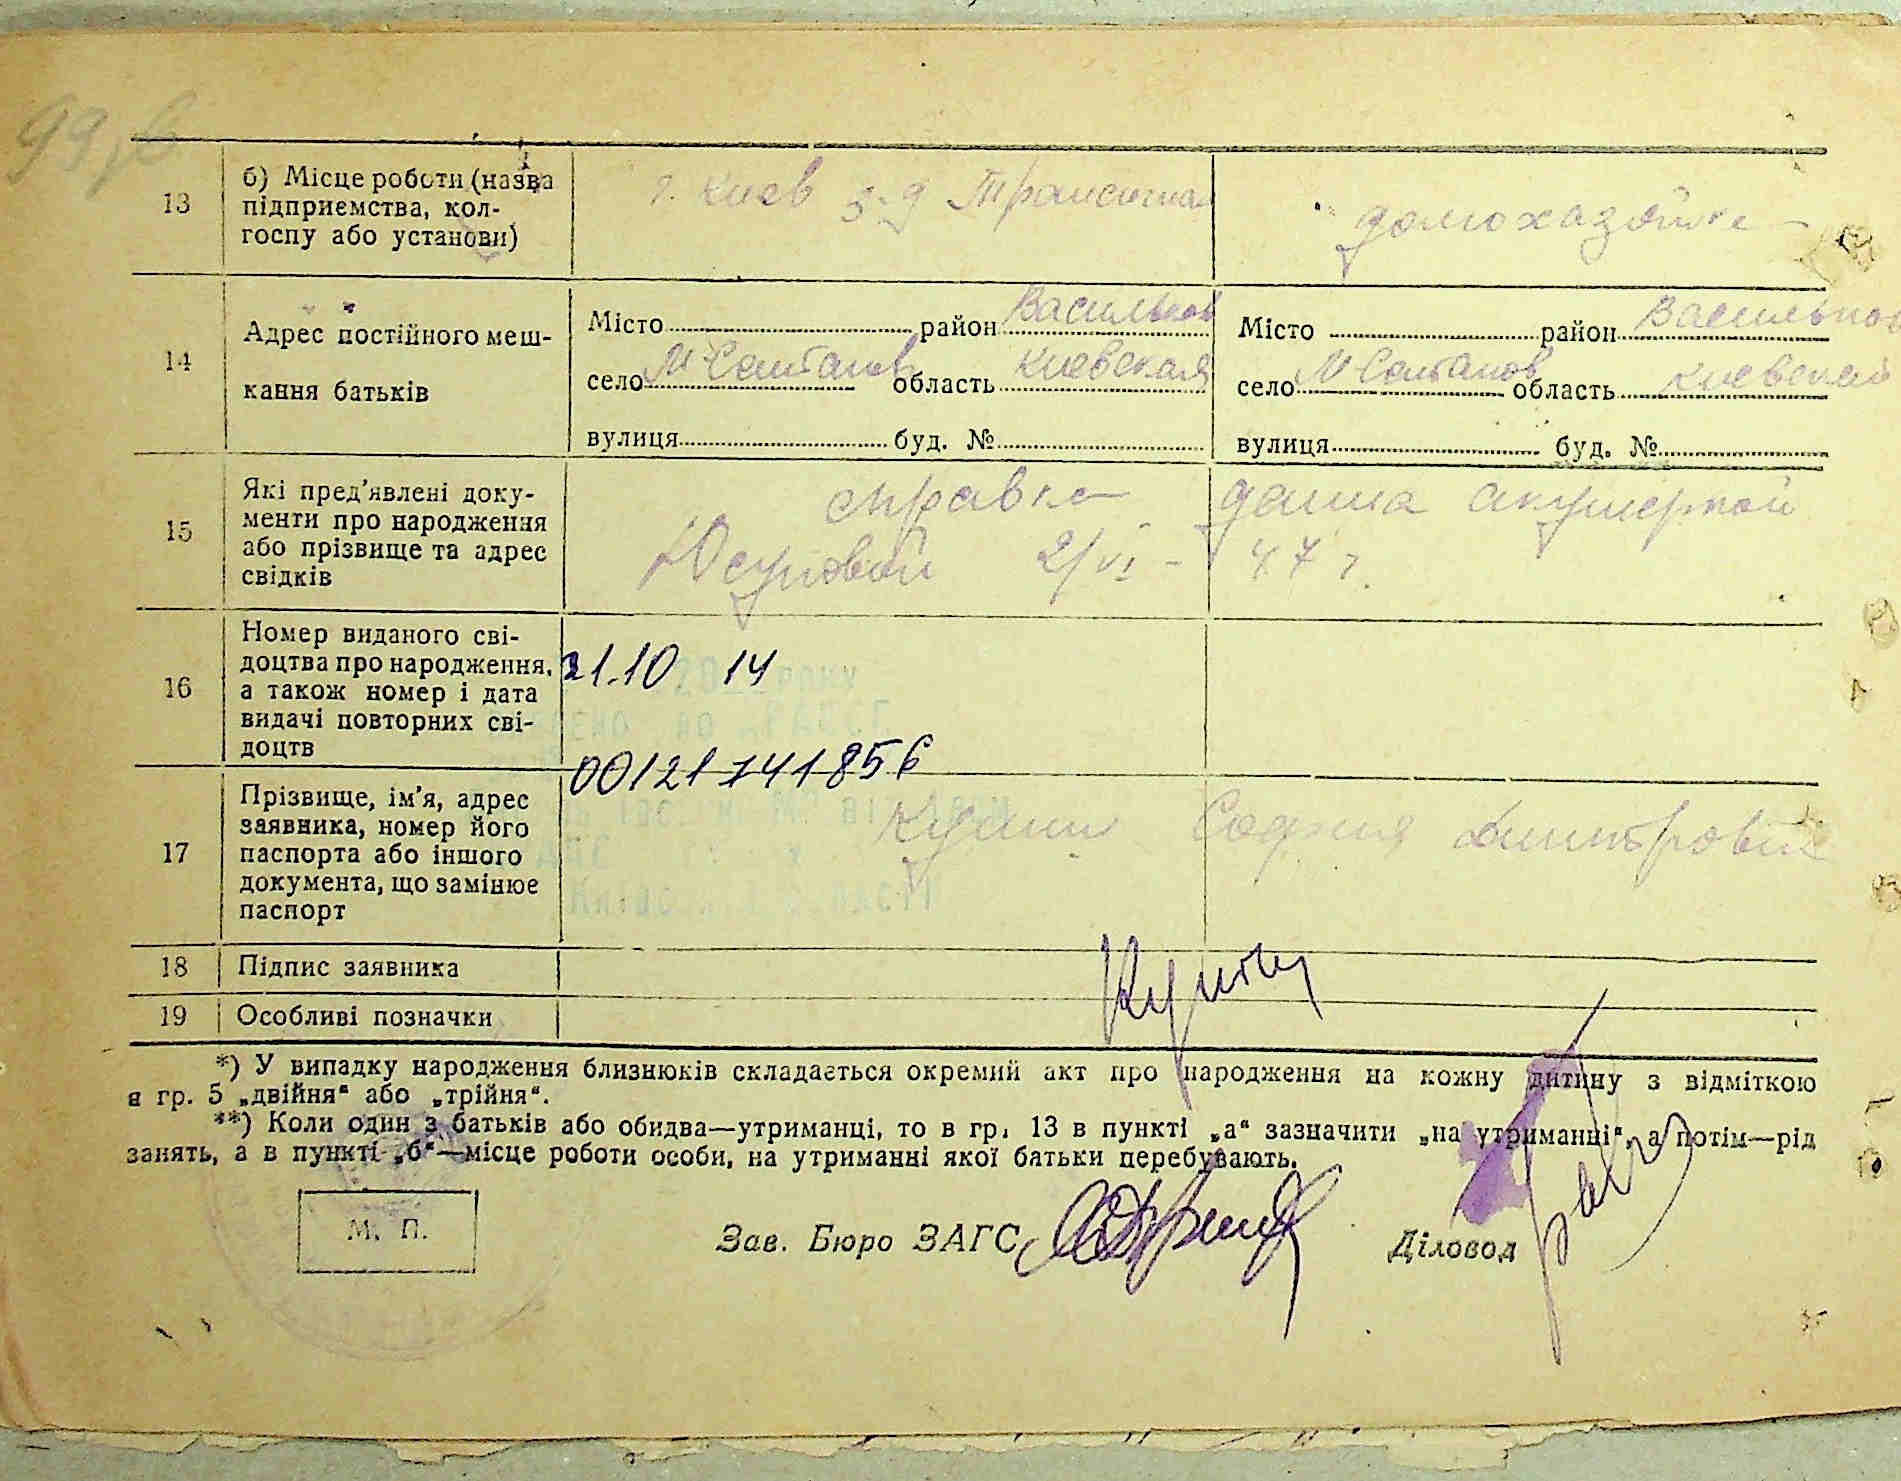 99
13
б) Місце роботи (назва
підприємства, кол-
госпу або установи)
г. Киев з-д
домохазяйка
14
Адрес постійного меш-
кання батьків
Місто район Васильков
село М-Салтанов область Киевская
вулиця буд. №
Місто район Васильков
село М Салтанов область Киевской
вулиця буд. №
15
Які пред'явлені доку-
менти про народження
або прізвище та адрес
свідків
справка дана акушеркой
Юсуповой 2/VI - 47 г.
16
Номер виданого сві-
доцтва про народження,
а також номер і дата
видачі повторних сві-
доцтв
21.10 14
00121741856
17
Прізвище, ім'я, адрес
заявника, номер його
паспорта або іншого
документа, що замінює
паспорт
София Дмитровна
18
Підпис заявника
19
Особливі позначки
*) У випадку народження близнюків складається окремий акт про народження на кожну дитину з відміткою
в гр. 5 „двійня" або „трійня".
**) Коли один з батьків або обидва—утриманці, то в гр. 13 в пункті „а" зазначити „на утриманні", а потім—рід
занять, а в пункті „б"—місце роботи особи, на утриманні якої батьки перебувають.
М. П.
Зав. Бюро ЗАГС
Діловод